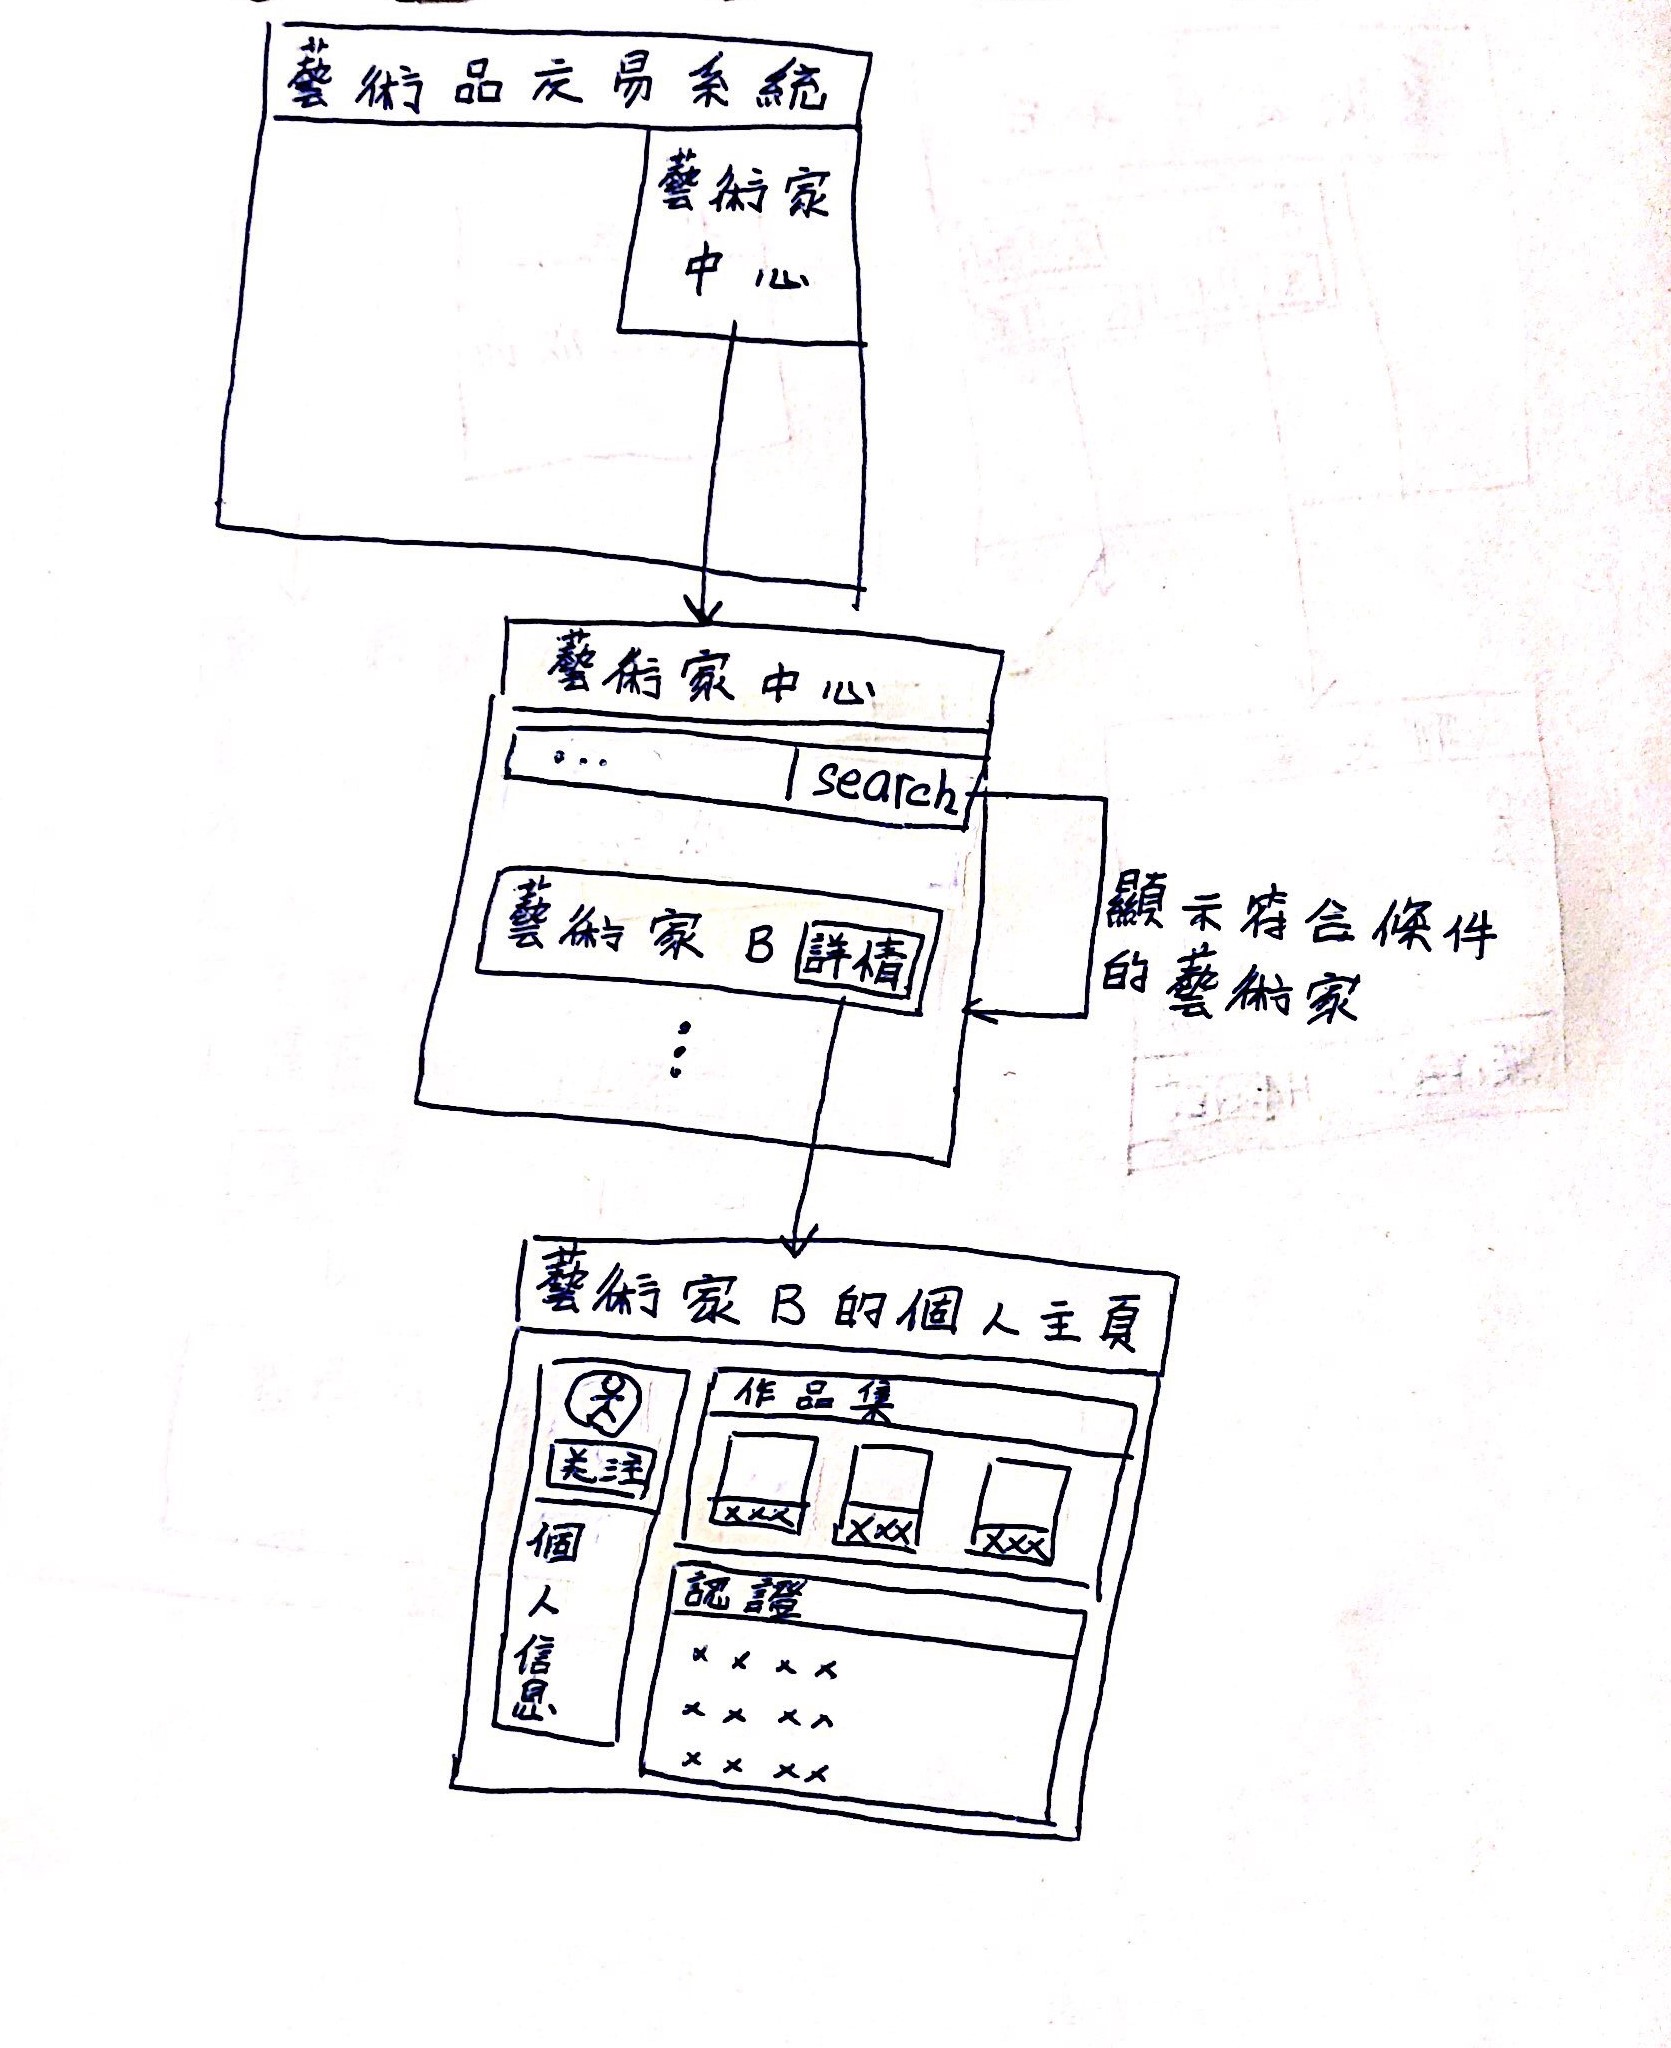 藝術品交易系統
藝術家
中心
藝術家中心
... search
藝術家 B 詳情
顯示符合條件
的藝術家
藝術家B的個人主頁
关注
個
人
信
息
作品集
xxx xxx xxx
認證
x x x x
x x x x
x x x x